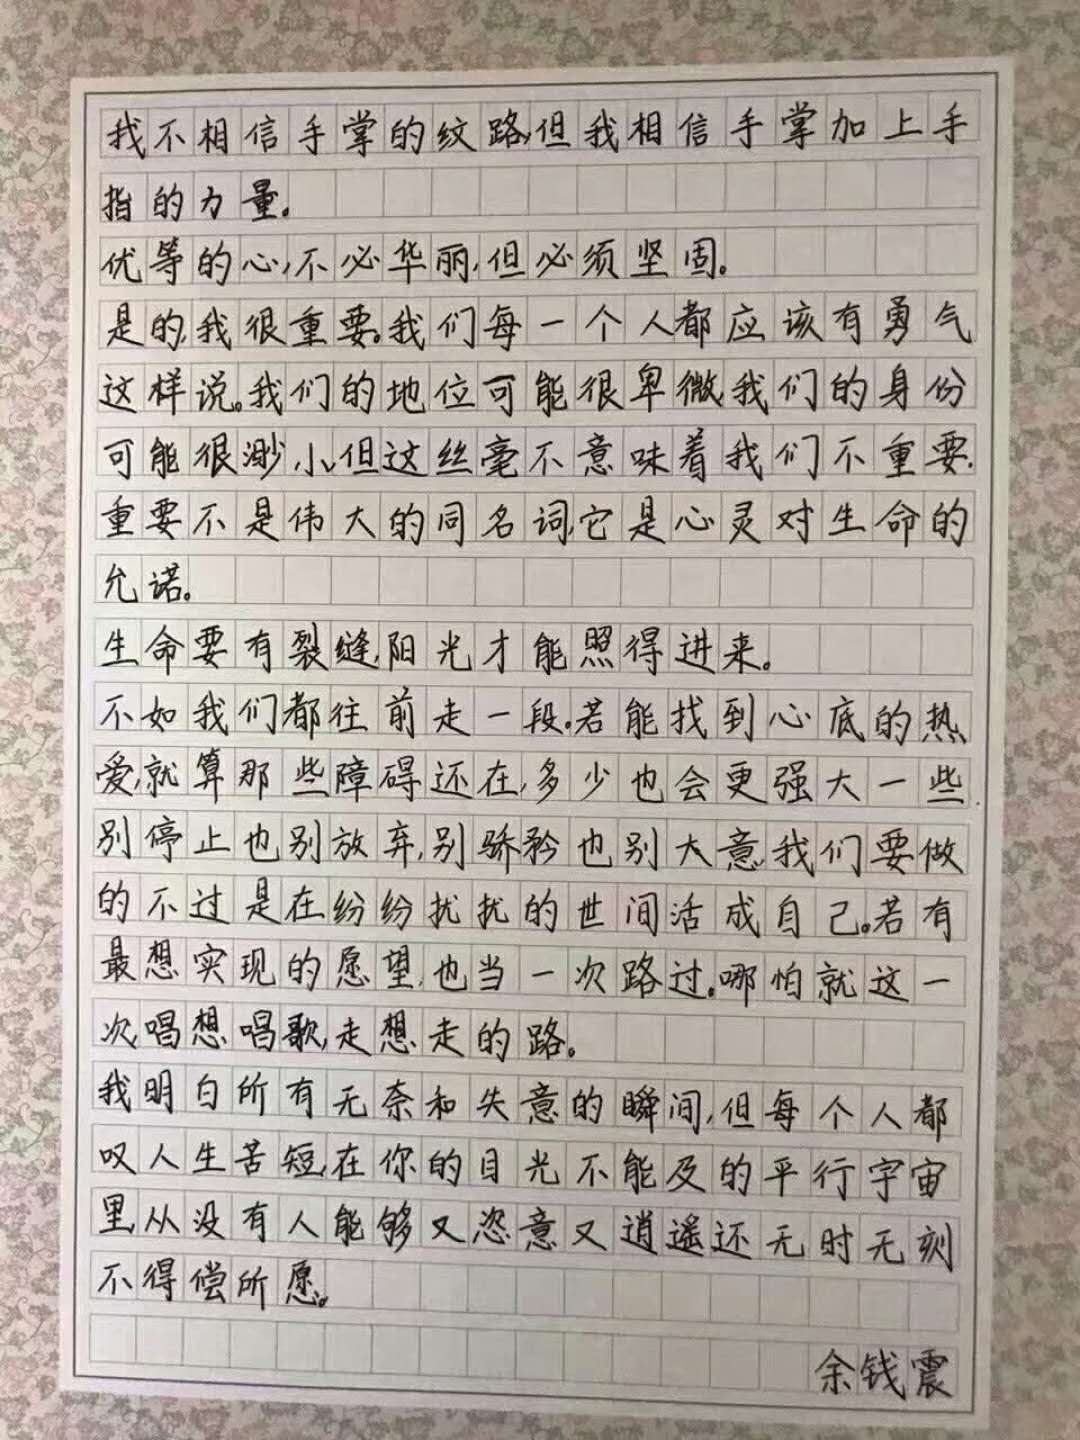 我不相信手掌的纹路,但我相信手掌加上手
指的力量。
优等的心,不必华丽,但必须坚固。
是的,我很重要。我们每一个人都应该有勇气
这样说。我们的地位可能很卑微,我们的身份
可能很渺小,但这丝毫不意味着我们不重要.
重要不是伟大的同名词,它是心灵对生命的
允诺。
生命要有裂缝,阳光才能照得进来。
不如我们都往前走一段。若能找到心底的热
爱,就算那些障碍还在,多少也会更强大一些.
别停止也别放弃,别骄矜也别大意,我们要做
的不过是在纷纷扰扰的世间活成自己。若有
最想实现的愿望,也当一次路过。哪怕就这一
次,唱想唱歌,走想走的路。
我明白所有无奈和失意的瞬间,但每个人都
叹人生苦短,在你的目光不能及的平行宇宙
里,从没有人能够又恣意又逍遥还无时无刻
不得偿所愿。
余钱震